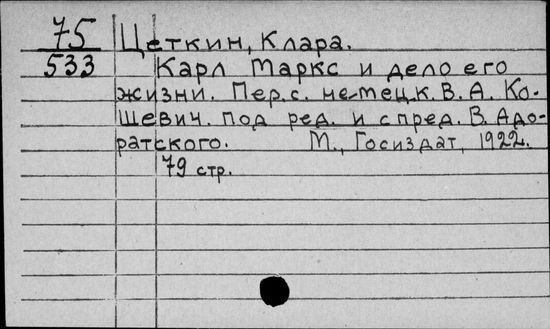 75 Цеткин, Клара.
533 Карл Маркс и дело его
жизни. Пер. с. немецк. В. А. Ко-
шевич. под ред. и с пред. В. Адо-
ратского. М., Госиздат, 1922.
79 стр.